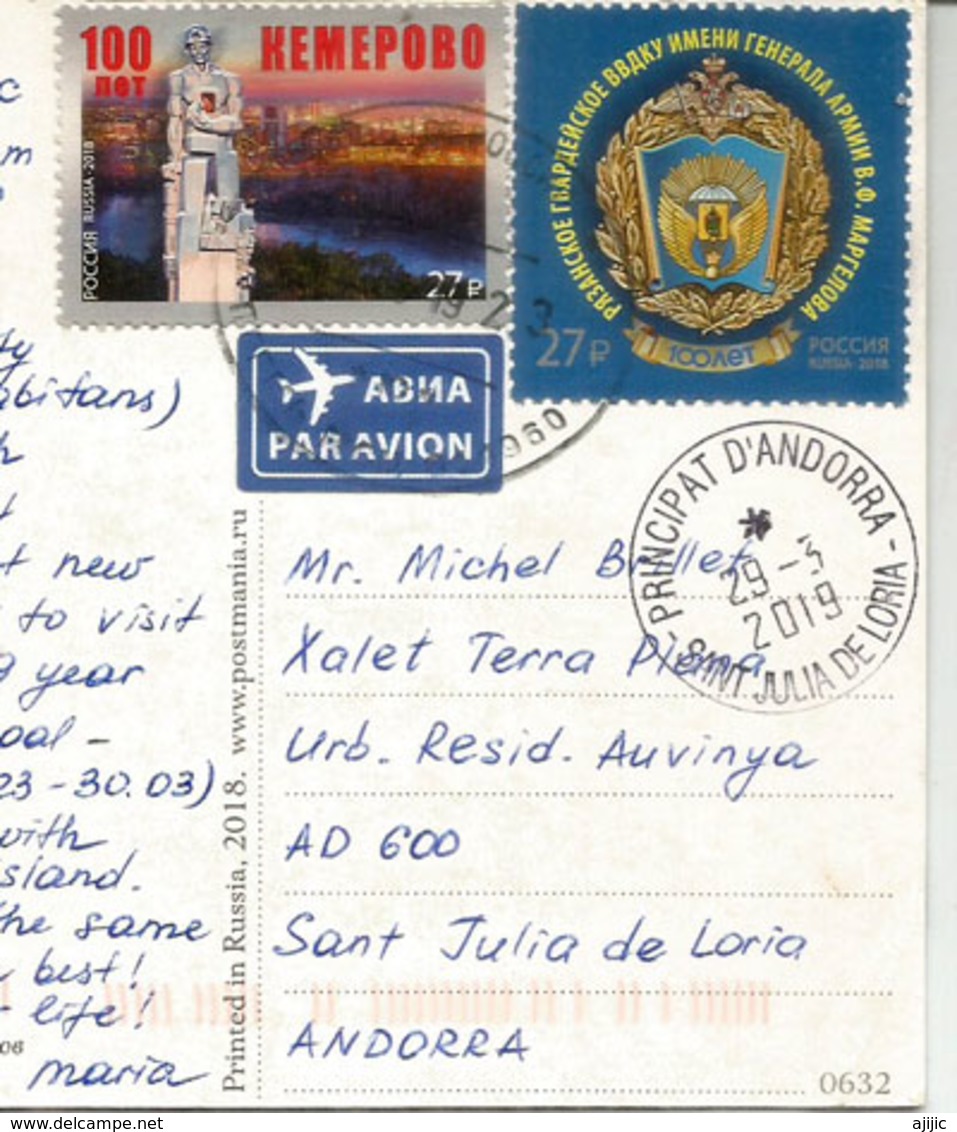 100 ЛЕТ
КЕМЕРОВО
РОССИЯ RUSSIA · 2018
27 ₽
РЯЗАНСКОЕ ГВАРДЕЙСКОЕ ВВДКУ ИМЕНИ ГЕНЕРАЛА АРМИИ В.Ф. МАРГЕЛОВА
27 ₽
100 ЛЕТ
РОССИЯ
RUSSIA · 2018
АВИА
PAR AVION
PRINCIPAT D'ANDORRA - SANT JULIA DE LORIA -
29 - 3
2019
new
to visit
year
-30.03)
with
the same
best!
life!
maria
Printed in Russia, 2018. www.postmania.ru
Mr. Michel
Xalet Terra Plena
Urb. Resid. Auvinya
AD 600
Sant Julia de Loria
ANDORRA
0632
© ajijic